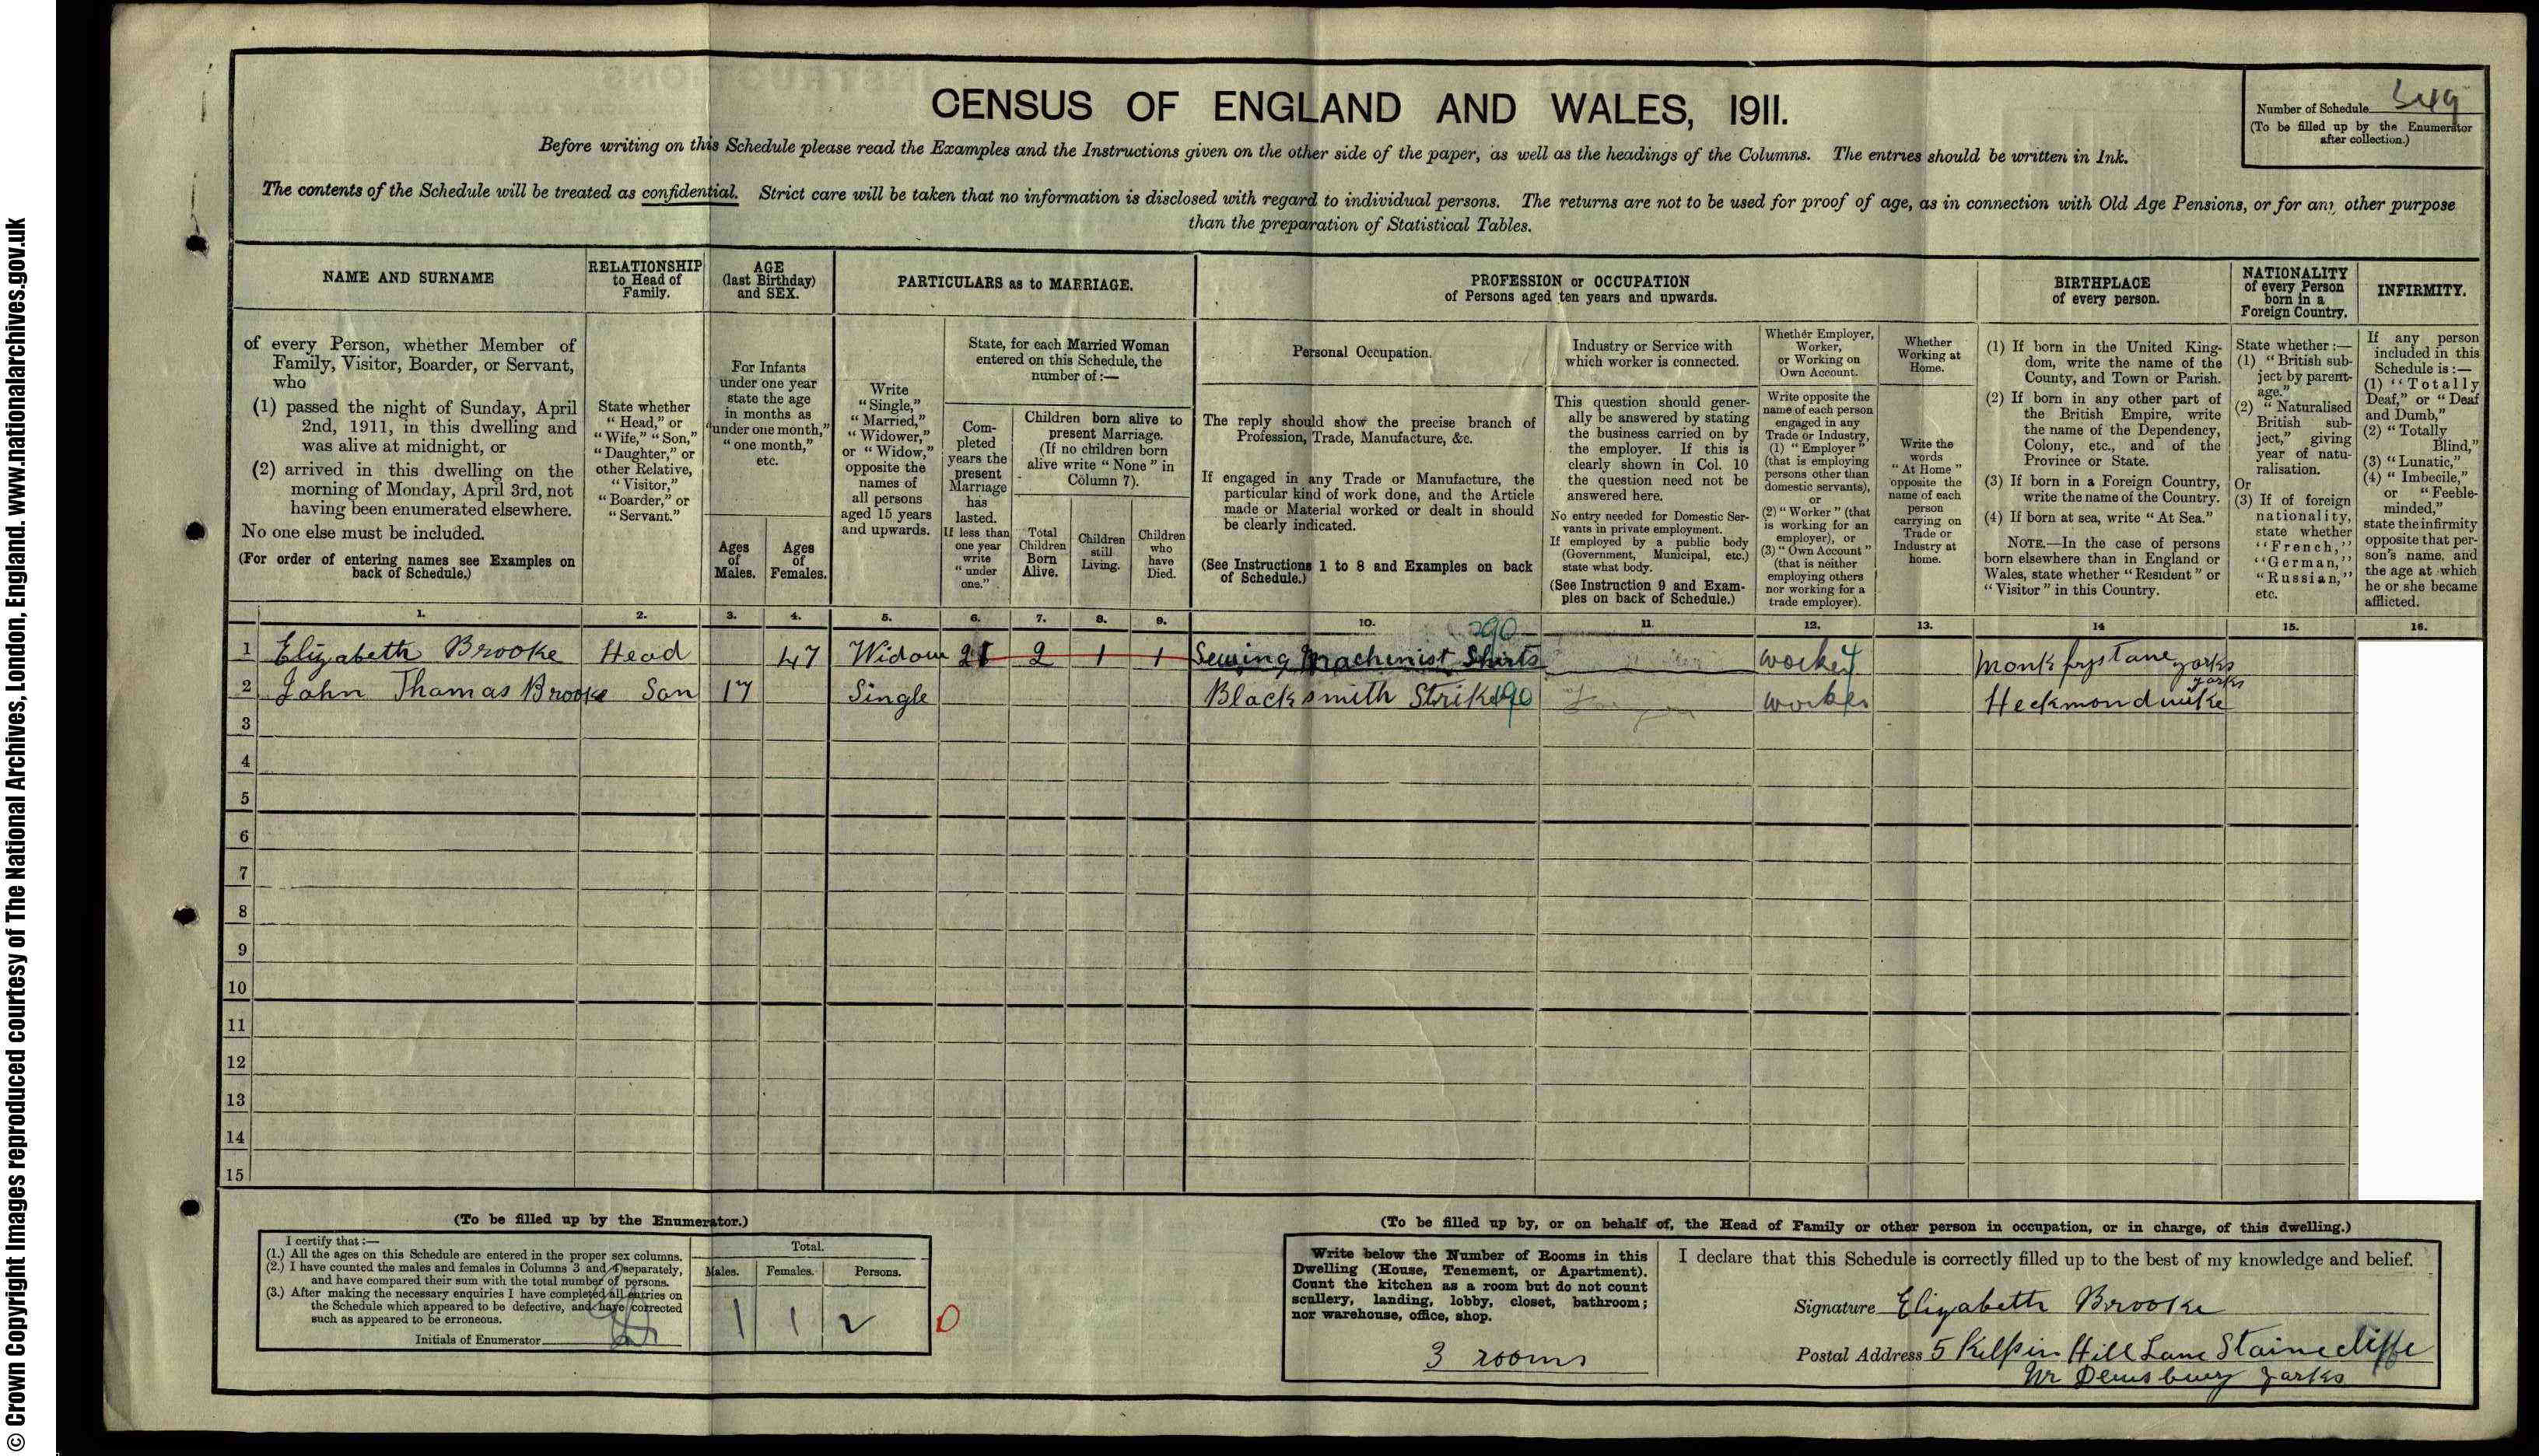 © Crown Copyright Images reproduced courtesy of The National Archives, London, England. www.nationalarchives.gov.uk
CENSUS OF ENGLAND AND WALES, 1911.
Number of Schedule 349
(To be filled up by the Enumerator
after collection.)
Before writing on this Schedule please read the Examples and the Instructions given on the other side of the paper, as well as the headings of the Columns. The entries should be written in Ink.
The contents of the Schedule will be treated as confidential. Strict care will be taken that no information is disclosed with regard to individual persons. The returns are not to be used for proof of age, as in connection with Old Age Pensions, or for any other purpose
than the preparation of Statistical Tables.
NAME AND SURNAME
of every Person, whether Member of
Family, Visitor, Boarder, or Servant,
who
(1) passed the night of Sunday, April
2nd, 1911, in this dwelling and
was alive at midnight, or
(2) arrived in this dwelling on the
morning of Monday, April 3rd, not
having been enumerated elsewhere.
No one else must be included.
(For order of entering names see Examples on
back of Schedule.)
RELATIONSHIP
to Head of
Family.
State whether
"Head," or
"Wife," "Son,"
"Daughter," or
other Relative,
"Visitor,"
"Boarder," or
"Servant."
AGE
(last Birthday)
and SEX.
For Infants
under one year
state the age
in months as
"under one month,"
"one month,"
etc.
Ages
of
Males.
Ages
of
Females.
PARTICULARS as to MARRIAGE.
Write
"Single,"
"Married,"
"Widower,"
or "Widow,"
opposite the
names of
all persons
aged 15 years
and upwards.
State, for each Married Woman
entered on this Schedule, the
number of :—
Com-
pleted
years the
present
Marriage
has
lasted.
If less than
one year
write
"under
one."
Children born alive to
present Marriage.
(If no children born
alive write "None" in
Column 7).
Total
Children
Born
Alive.
Children
still
Living.
Children
who
have
Died.
PROFESSION or OCCUPATION
of Persons aged ten years and upwards.
Personal Occupation.
The reply should show the precise branch of
Profession, Trade, Manufacture, &c.
If engaged in any Trade or Manufacture, the
particular kind of work done, and the Article
made or Material worked or dealt in should
be clearly indicated.
(See Instructions 1 to 8 and Examples on back
of Schedule.)
Industry or Service with
which worker is connected.
This question should gener-
ally be answered by stating
the business carried on by
the employer. If this is
clearly shown in Col. 10
the question need not be
answered here.
No entry needed for Domestic Ser-
vants in private employment.
If employed by a public body
(Government, Municipal, etc.)
state what body.
(See Instruction 9 and Exam-
ples on back of Schedule.)
Whether Employer,
Worker,
or Working on
Own Account.
Write opposite the
name of each person
engaged in any
Trade or Industry,
(1) "Employer"
(that is employing
persons other than
domestic servants),
or
(2) "Worker" (that
is working for an
employer), or
(3) "Own Account"
(that is neither
employing others
nor working for a
trade employer).
Whether
Working at
Home.
Write the
words
"At Home"
opposite the
name of each
person
carrying on
Trade or
Industry at
home.
BIRTHPLACE
of every person.
(1) If born in the United King-
dom, write the name of the
County, and Town or Parish.
(2) If born in any other part of
the British Empire, write
the name of the Dependency,
Colony, etc., and of the
Province or State.
(3) If born in a Foreign Country,
write the name of the Country.
(4) If born at sea, write "At Sea."
NOTE.—In the case of persons
born elsewhere than in England or
Wales, state whether "Resident" or
"Visitor" in this Country.
NATIONALITY
of every Person
born in a
Foreign Country.
State whether :—
(1) "British sub-
ject by parent-
age."
(2) "Naturalised
British sub-
ject," giving
year of natu-
ralisation.
Or
(3) If of foreign
nationality,
state whether
"French,"
"German,"
"Russian,"
etc.
INFIRMITY.
If any person
included in this
Schedule is :—
(1) "Totally
Deaf," or "Deaf
and Dumb,"
(2) "Totally
Blind,"
(3) "Lunatic,"
(4) "Imbecile,"
or "Feeble-
minded,"
state the infirmity
opposite that per-
son's name, and
the age at which
he or she became
afflicted.
1. 2. 3. 4. 5. 6. 7. 8. 9. 10. 11. 12. 13. 14 15. 16.
290
1 Elizabeth Brooke Head 47 Widow 21 2 1 1 Sewing Machenist Shirts Worker Monk frystane yorks
2 John Thomas Brooke Son 17 Single Blacksmith Striker worker Heckmondwike yorks
3
4
5
6
7
8
9
10
11
12
13
14
15
(To be filled up by the Enumerator.)
I certify that :—
(1.) All the ages on this Schedule are entered in the proper sex columns.
(2.) I have counted the males and females in Columns 3 and 4 separately,
and have compared their sum with the total number of persons.
(3.) After making the necessary enquiries I have completed all entries on
the Schedule which appeared to be defective, and have corrected
such as appeared to be erroneous.
Initials of Enumerator
Total.
Males. Females. Persons.
1 1 2 0
(To be filled up by, or on behalf of, the Head of Family or other person in occupation, or in charge, of this dwelling.)
Write below the Number of Rooms in this
Dwelling (House, Tenement, or Apartment).
Count the kitchen as a room but do not count
scullery, landing, lobby, closet, bathroom;
nor warehouse, office, shop.
3 rooms
I declare that this Schedule is correctly filled up to the best of my knowledge and belief.
Signature Elizabeth Brooke
Postal Address 5 Kilpin Hill Lane Staincliffe
Nr Dewsbury Yorks